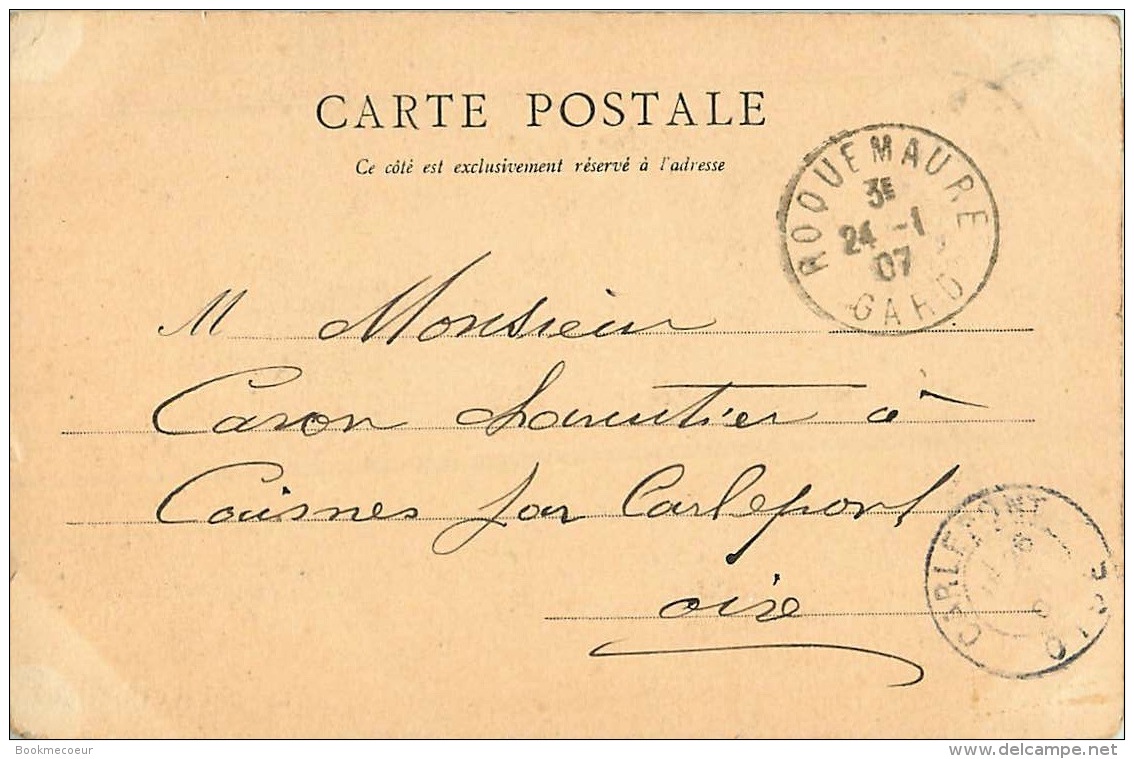 CARTE POSTALE
Ce côté est exclusivement réservé à l'adresse
ROQUEMAURE
3E
24 -1
07
GARD
M Monsieur
Caron charcutier à
Couisnes par Carlepont
oise
CARLEPONT
OISE
Bookmecoeur
www.delcampe.net